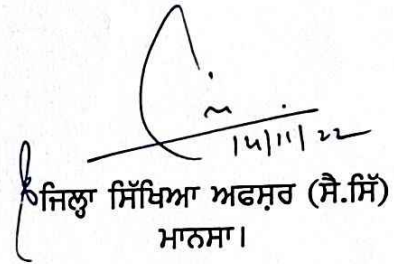 14/11/22
ਜਿਲ੍ਹਾ ਸਿੱਖਿਆ ਅਫਸ਼ਰ (ਸੈ.ਸਿੱ)
ਮਾਨਸਾ।